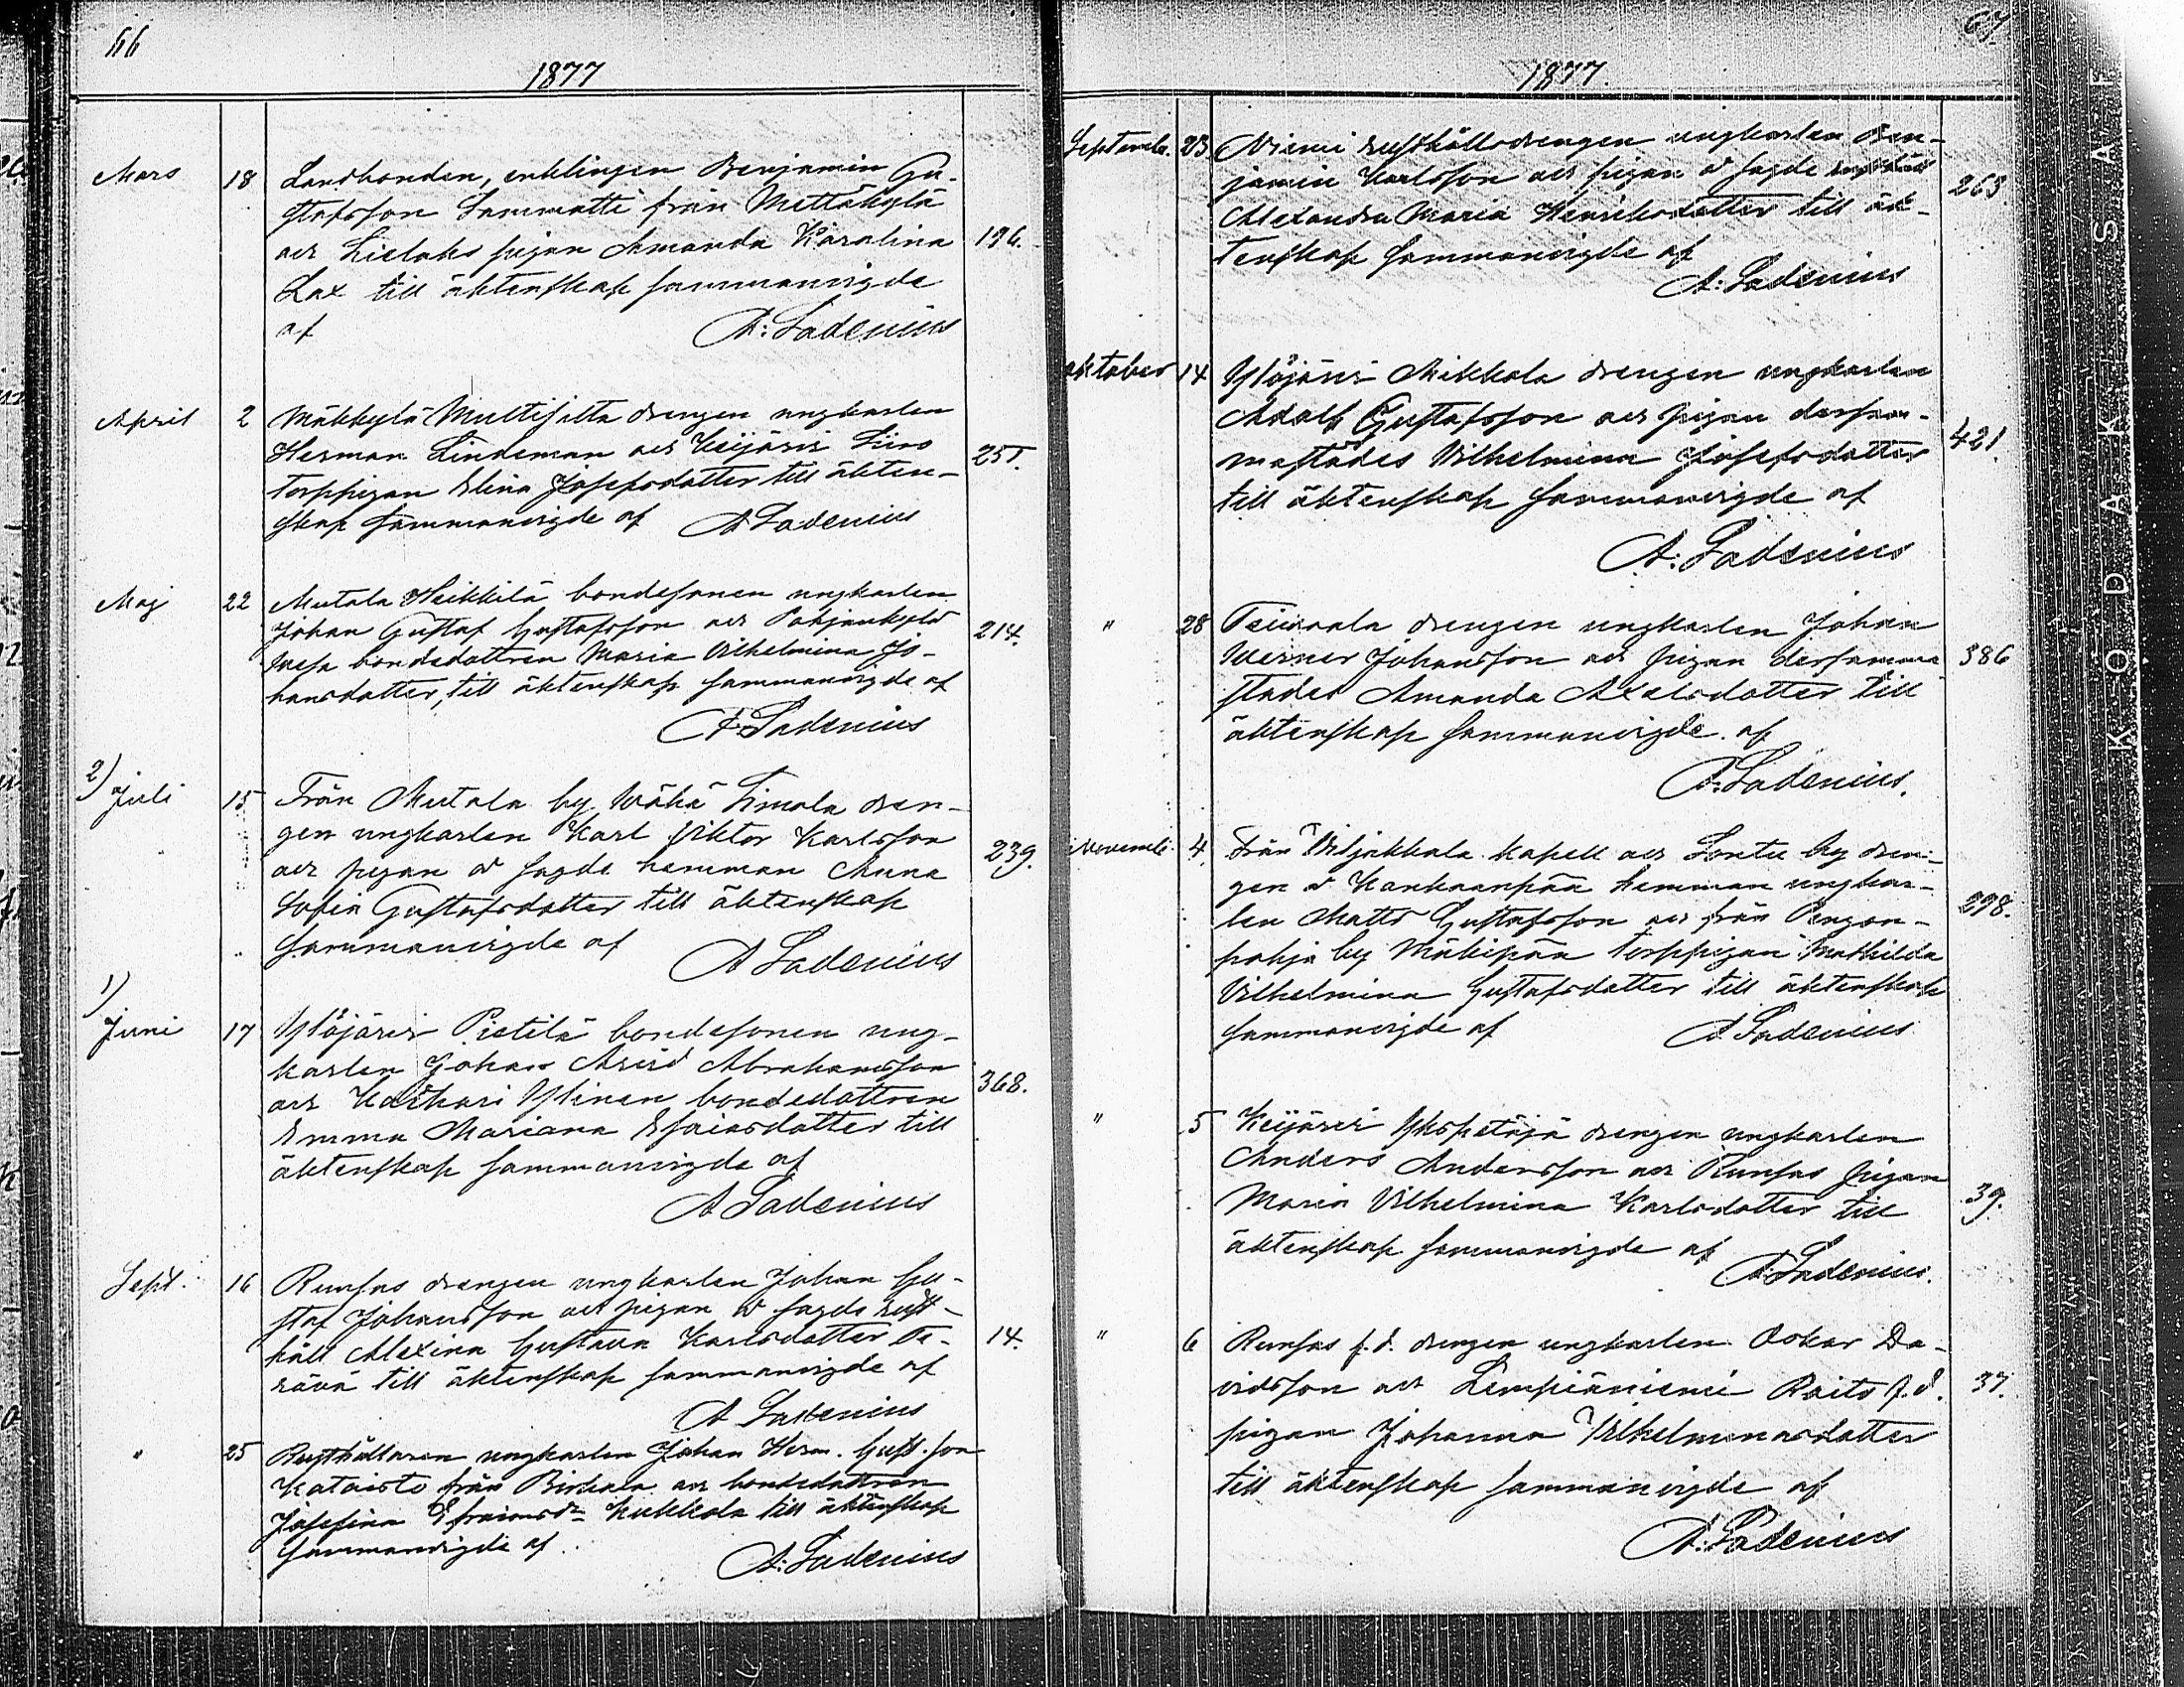 66
1877
Mars 18 Landbonden, enklingen Benjamin Gu-
stafsson Sammatti från Mettäkylä
och Lielaks pigan Amanda Karolina 196.
Lax till äktenskap sammanvigde
af A: Ladenius
April 2 Mäkkylä Multisilta drengen ungkarlen
Herman Lindeman och Keijäris Siiro 251.
torppigan Elina Josefsdotter till äkten-
skap sammanvigde af A Ladenius
Maj 22 Mutala Heikkilä bondesonen ungkarlen
Johan Gustaf Gustafsson och Pohjankylä 214.
bondedottren Maria Vilhelmina Jo-
hansdotter, till äktenskap sammanvigde af
A Ladenius
2) Juli 15 Från Mutala by Wähä Simola dren-
gen ungkarlen Karl Viktor Karlsson
och pigan å sagde hemman Anna 239.
Sofia Gustafsdotter till äktenskap
sammanvigde af A Ladenius
1) Juni 17 Ylöjärvi Pietilä bondesonen ung-
karlen Johan Arvid Abrahamsson
och Ylinen bondedottren 368.
Emma Mariana Esaiasdotter till
äktenskap sammanvigde af
A Ladenius
Sept. 16 Runsas drengen ungkarlen Johan Gu-
staf Johansson och pigan å sagde rust-
håll Alexina Gustava Karlsdotter Te- 14.
rävä till äktenskap sammanvigde af
A Ladenius
" 25 Rusthållaren ungkarlen Johan Herm. Gust.son
Kataisto från Birkala och bondedottren
Josefina Efraimsdr Kukkola till äktenskap
sammanvigde af A: Ladenius
67
1877.
September. 23 Niemi rusthållsdrengen ungkarlen Ben-
jamin Karlsson och pigan å sagde rusthåll 263.
Alexandra Maria Henriksdotter till äk-
tenskap sammanvigde af
A: Ladenius
oktober 14 Ylöjärvi Mikkola drengen ungkarlen
Adolf Gustafsson och pigan dersam-
mastädes Vilhelmina Josefsdotter 421.
till äktenskap sammanvigde af
A: Ladenius
" 28 Teivaala drengen ungkarlen Johan
Werner Johansson och pigan dersamma 386
städes Amanda Axelsdotter till
äktenskap sammanvigde af
A: Ladenius.
November 4. Från Viljakkala kapell och Sontu by dren-
gen å Kankaanpää hemman ungkar-
len Matts Gustafsson och från Pengon- 298.
pohja by Mäkipää torppigan Mathilda
Vilhelmina Gustafsdotter till äktenskap
sammanvigde af A Ladenius
" 5 Keijärvi Ykspetäjä drengen ungkarlen
Anders Andersson och Runsas pigan
Maria Vilhelmina Karlsdotter till 39.
äktenskap sammanvigde af
A Ladenius.
" 6 Runsas f.d. drengen ungkarlen Oskar Da-
vidsson och Lempiäniemi Raito f.d. 37.
pigan Johanna Vilhelminasdotter
till äktenskap sammanvigde af
A: Ladenius
KODAK SAFE